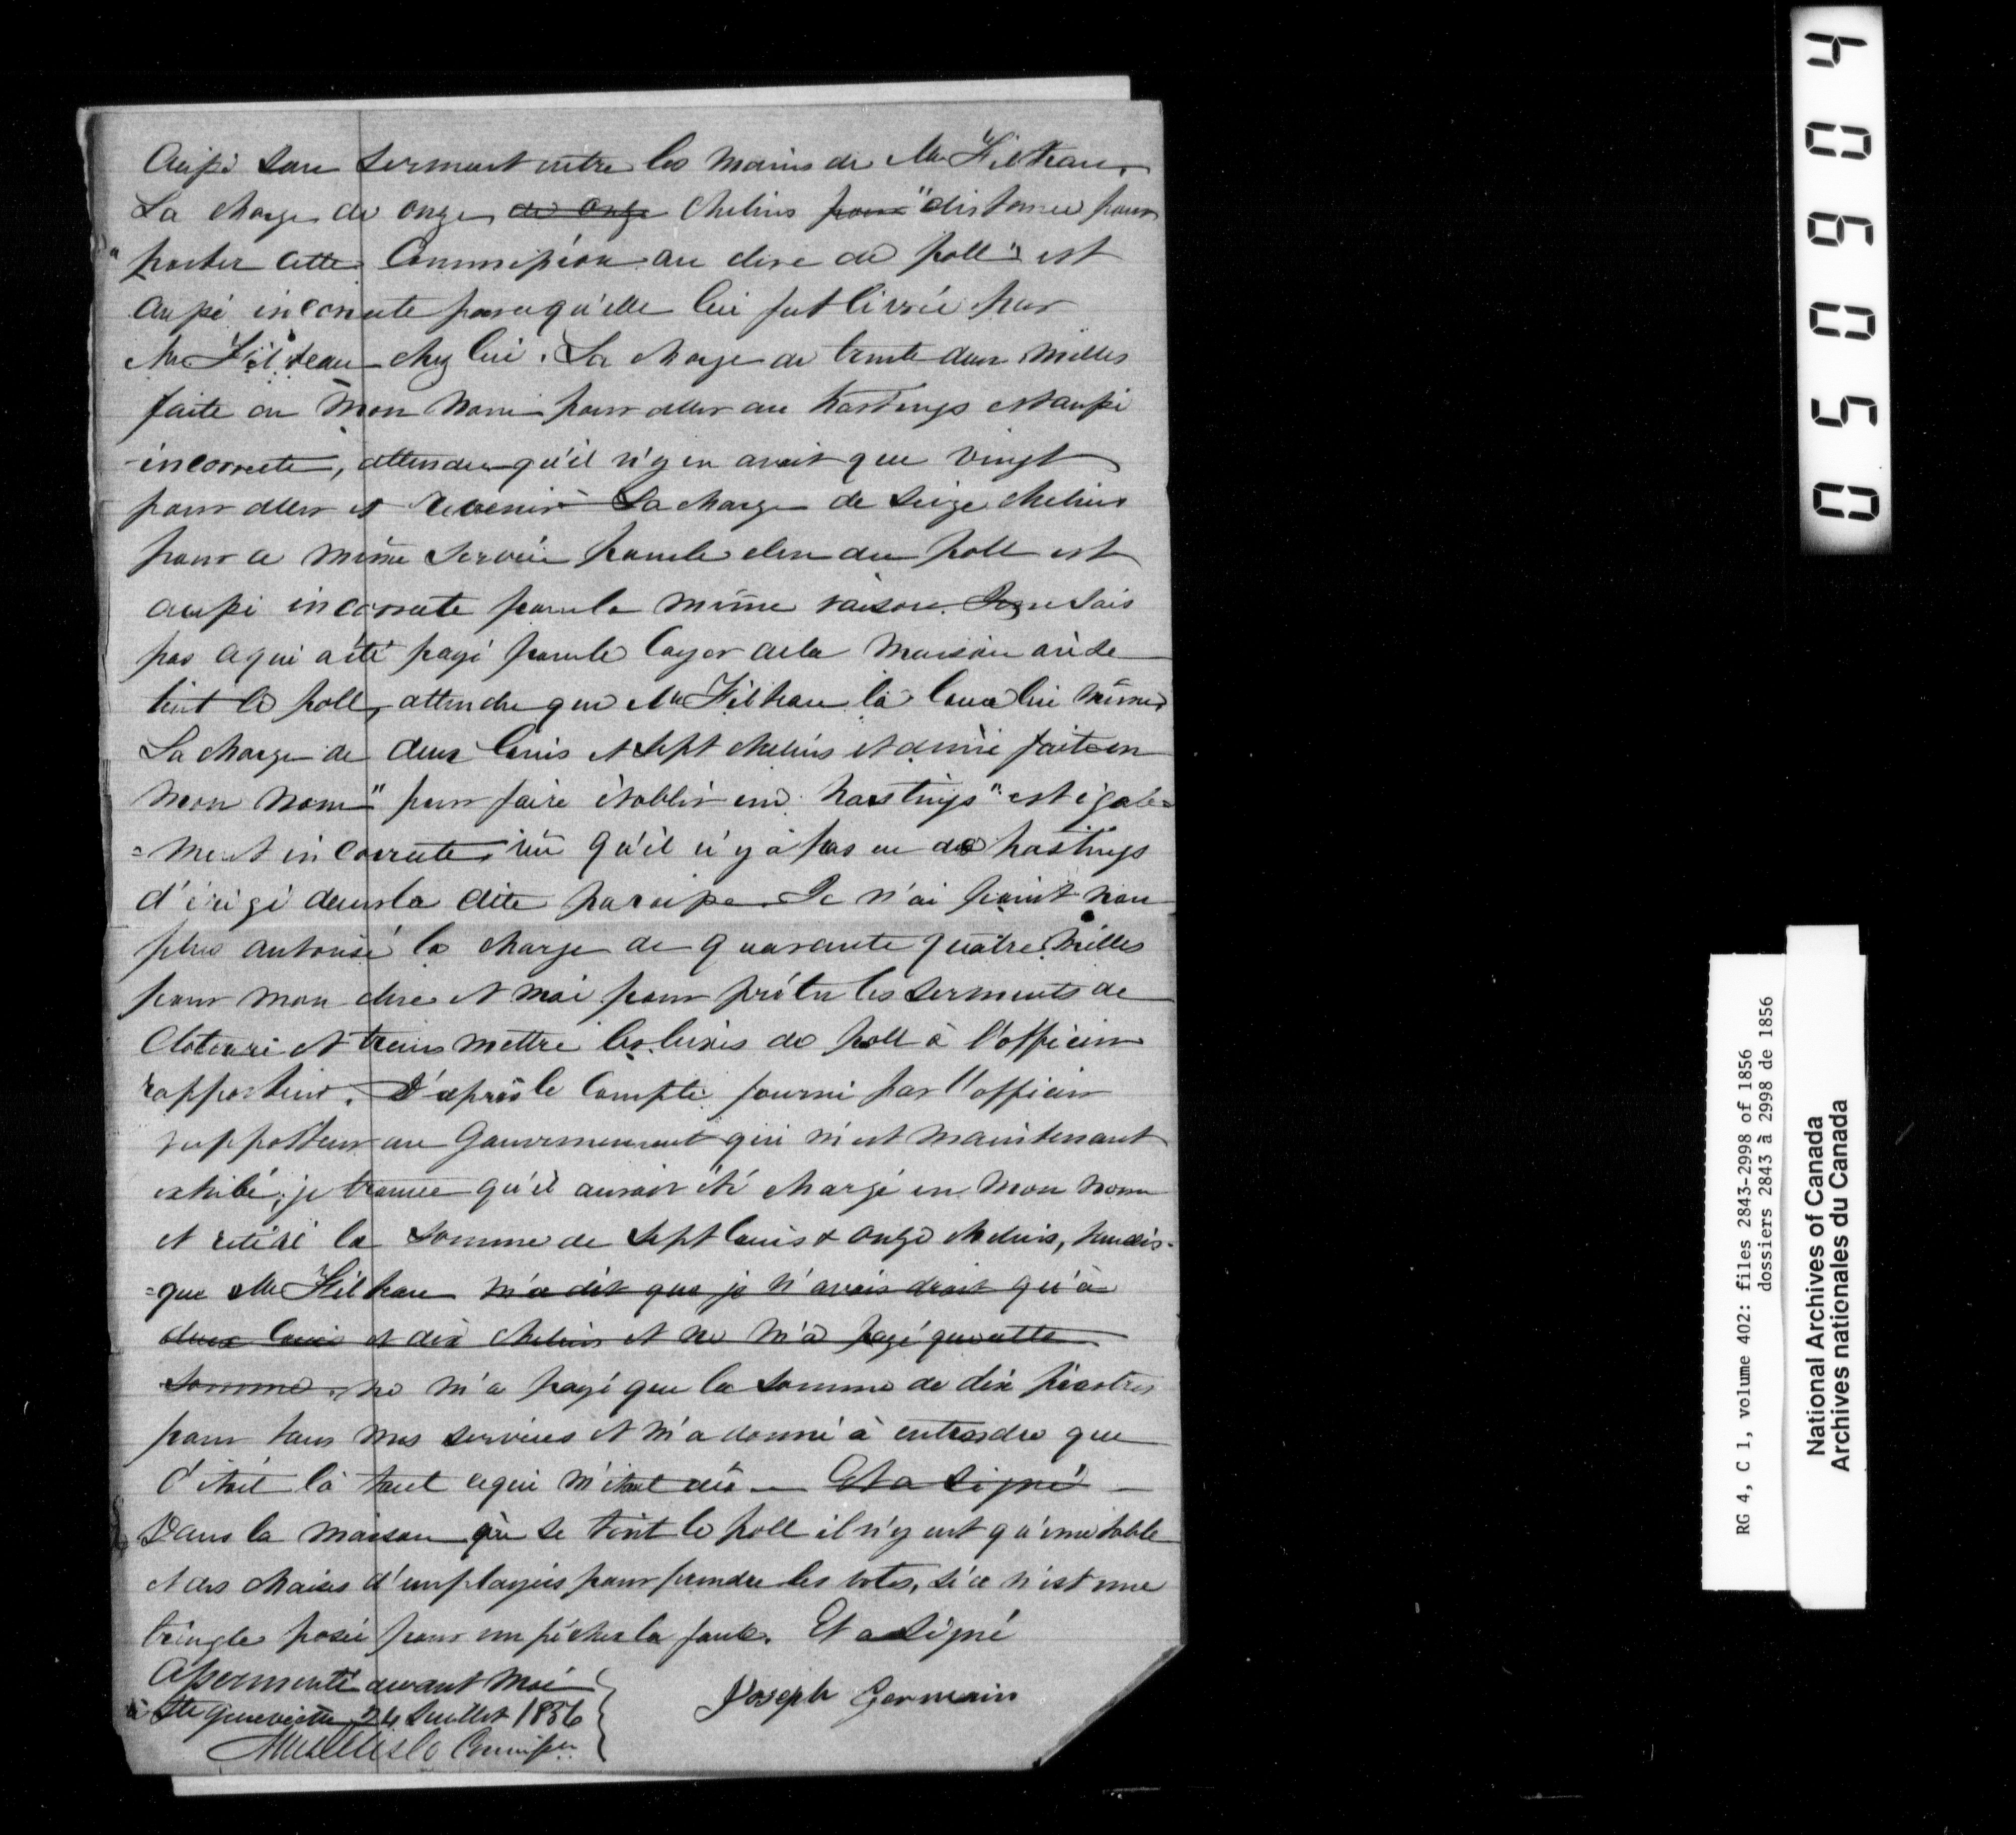 Aussi son serment entre les mains de Mr Filteau.
La charge de onze de onze chelins pour "distance pour
"porter cette Commission au clerc de poll" est
aussi incorrecte parcequ'elle lui fut livrée par
Mr Filteau chez lui. La charge de trente deux milles
faite en mon nom pour aller au hustings est aussi
incorrecte, attendu qu'il n'y en avait que vingt
pour aller et revenir - La charge de seize chelins
pour ce même service pour le clerc du poll est
aussi incorrecte pour la même raison. Je ne sais
pas ce qui a été payé pour le loyer de la maison où se
tint le poll, attendu que Mr Filteau la loua lui même.
La charge de deux louis et sept chelins et demi faite en
mon nom "pour faire établir un hustings" est égale=
=ment incorrecte, vu qu'il n'y a pas eu de hustings
d'érigé dans la dite paroisse. Je n'ai point non
plus autorisé la charge de quarante quatre milles
pour mon clerc et moi pour prêter les serments de
cloture et transmettre les livres de poll à l'officier
rapporteur. D'après le compte fourni par l'officier
rapporteur au Gouvernement qui m'est maintenant
exhibé, je trouve qu'il aurait été chargé en mon nom
et retiré la somme de sept louis & onze chelins, tandis=
=que Mr Filteau m'a dit que je n'avais droit qu'à
deux louis et dix chelins et ne m'a payé que cette
somme. ne m'a payé que la somme de dix piastres
pour tous mes services et m'a donné à entendre que
c'était là tout ce qui m'était dû - Et a signé -
Dans la maison où se tint le poll il n'y eut qu'une table
et des chaises d'employées pour prendre les votes, si ce n'est une
tringle posée pour empêcher la foule. Et a signé
Assermenté devant moi
à Ste Geneviève, 24 Juillet 1856
Joseph Germain
Commissre
04
0
9
0
5
0
RG 4, C 1, volume 402: files 2843-2998 of 1856
dossiers 2843 à 2998 de 1856
National Archives of Canada
Archives nationales du Canada